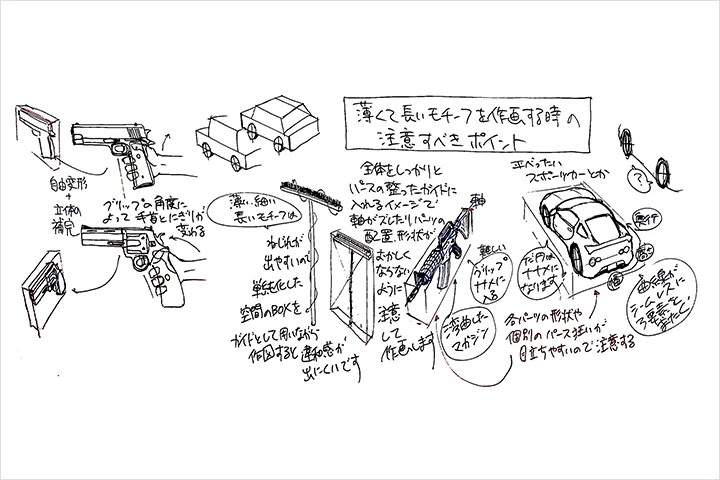 薄くて長いモチーフを作画する時の
注意すべきポイント
自由変形
+
立体の
補完
グリップの角度に
よって手首とにぎりが
変わる
薄い、細い
長いモチーフは
ねじれが
出やすいので
単純化した
空間のBOXを
ガイドとして用いながら
作図すると違和感が
出にくいです
全体をしっかりと
パースの整ったガイドに
入れるイメージで
軸がズレたりパーツの
配置、形状が
おかしく
ならない
ように
注意
して
作画します
軸
難しい
グリップ
ナナメに
入る
湾曲した
マガジン
平べったい
スポーツカーとか
?
奥行
だ円は
ナナメに
なります
曲線が
シームレスに
各パーツの形状や
個別のパース狂いが
目立ちやすいので注意する